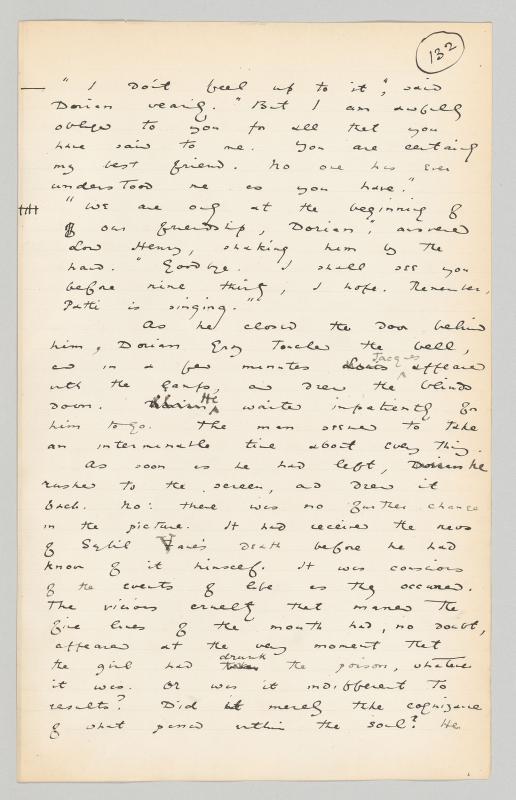 132
" I don't feel up to it", said
Dorian wearily. " But I am awfully
obliged to you for all that you
have said to me. You are certainly
my best friend. No one has ever
understood me as you have."
" We are only at the beginning of
of our friendship, Dorian", answered
Lord Henry, shaking him by the
hand. " Goodbye. I shall see you
before nine thirty, I hope. Remember,
Patti is singing."
As he closed the door behind
him, Dorian Gray touched the bell,
and in a few minutes Louis Jacques appeared
with the lamps, and drew the blinds
down. Dorian He waited impatiently for
him to go. The man seemed to take
an interminable time about every thing.
As soon as he had left, Dorian he
rushed to the screen, and drew it
back. No: there was no further change
in the picture. It had received the news
of Sybil Vane's death before he had
known of it himself. It was conscious
of the events of life as they occurred.
The vicious cruelty that marred the
fine lines of the mouth had, no doubt,
appeared at the very moment that
the girl had taken drunk the poison, whatever
it was. Or was it indifferent to
results? Did it merely take cognizance
of what passed within the soul? He